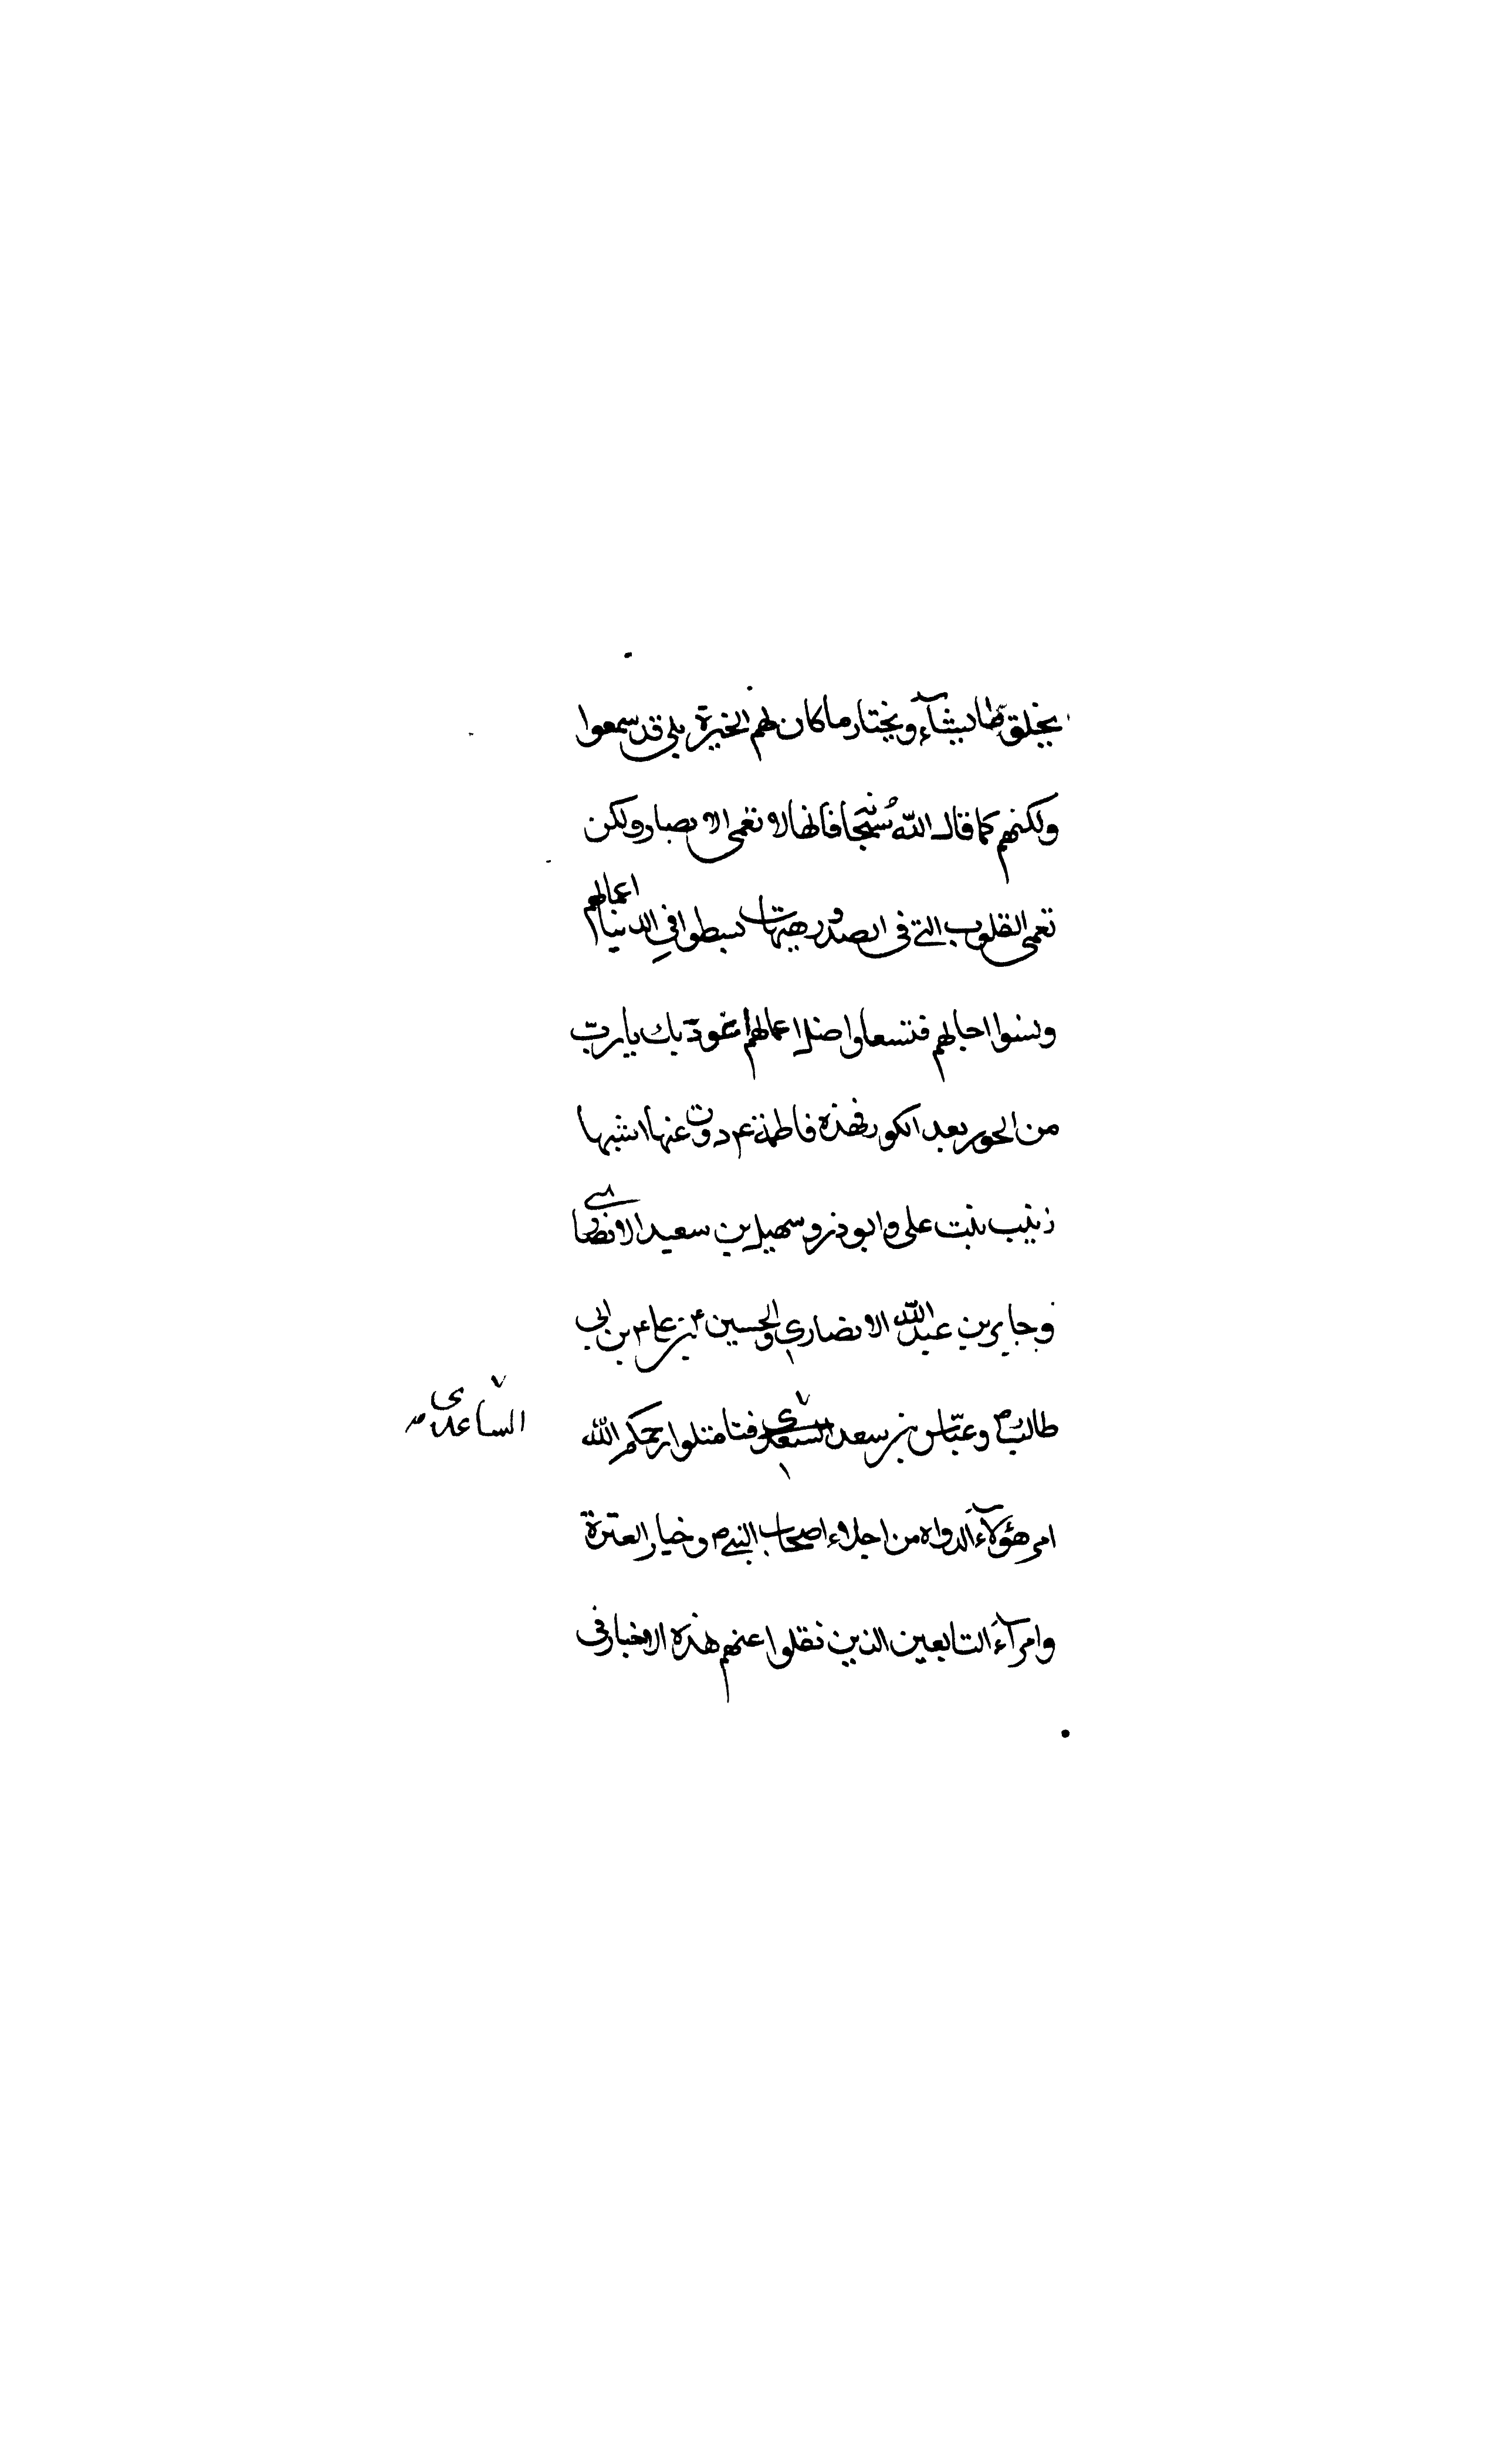 يخلق ما يشآء ويختار ما كان لهم الخيرة بلى قد سمعوا
ولكنهم كما قال الله سُبحا فانها لا تعمى الابصار ولكن
تعمى القلوب التى فى الصدور هيهات بسطوا فِي الدنيا اعمالهم
ونسوا اجالهم فتسعا واضل اعمالهم اعوذ بك يا ربّ
من الحور بعد الكور فهذه فاطمة ع روت عنها ابنتها
زينب بنت على وابوذر وسهيل بن سعيد الانصارى
وجابر بن عبد الله الانصارى والحسين ع بن على ع بن ابى
طالب ع وعبّاس بن سعد الساعدى فتاملوا رحمكم الله
امر هؤلآء الرواه من اجلاء اصحاب النبى ص وخيار العترة
وامرآء التابعين الذين نقلوا عنهم هذه الاخبار فى